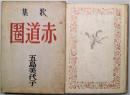 歌集
赤道圏
五島美代子